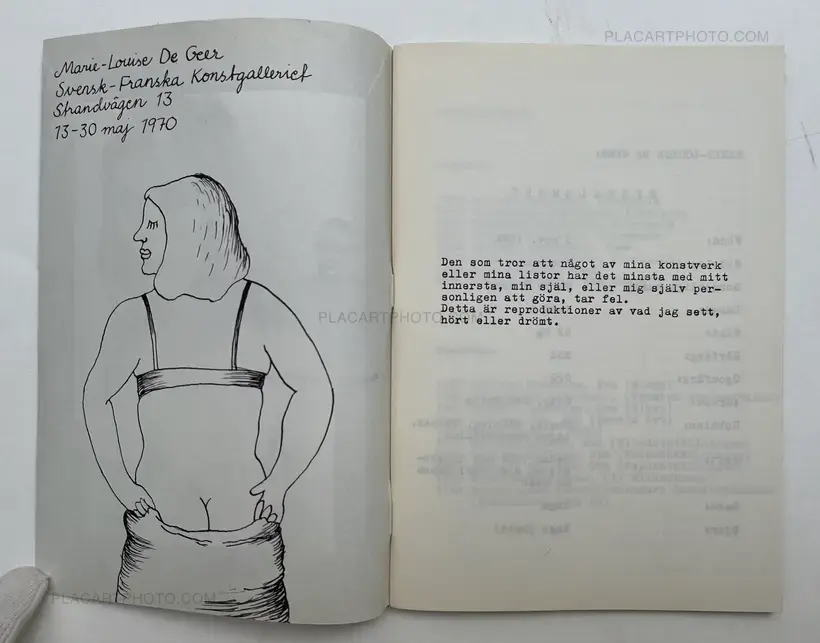 PLACARTPHOTO.COM
Marie-Louise De Geer
Svensk-Franska Konstgalleriet
Strandvägen 13
13-30 maj 1970
Den som tror att något av mina konstverk
eller mina listor har det minsta med mitt
innersta, min själ, eller mig själv per-
sonligen att göra, tar fel.
Detta är reproduktioner av vad jag sett,
hört eller drömt.
PLACARTPHOTO.COM
PLACARTPHOTO.COM